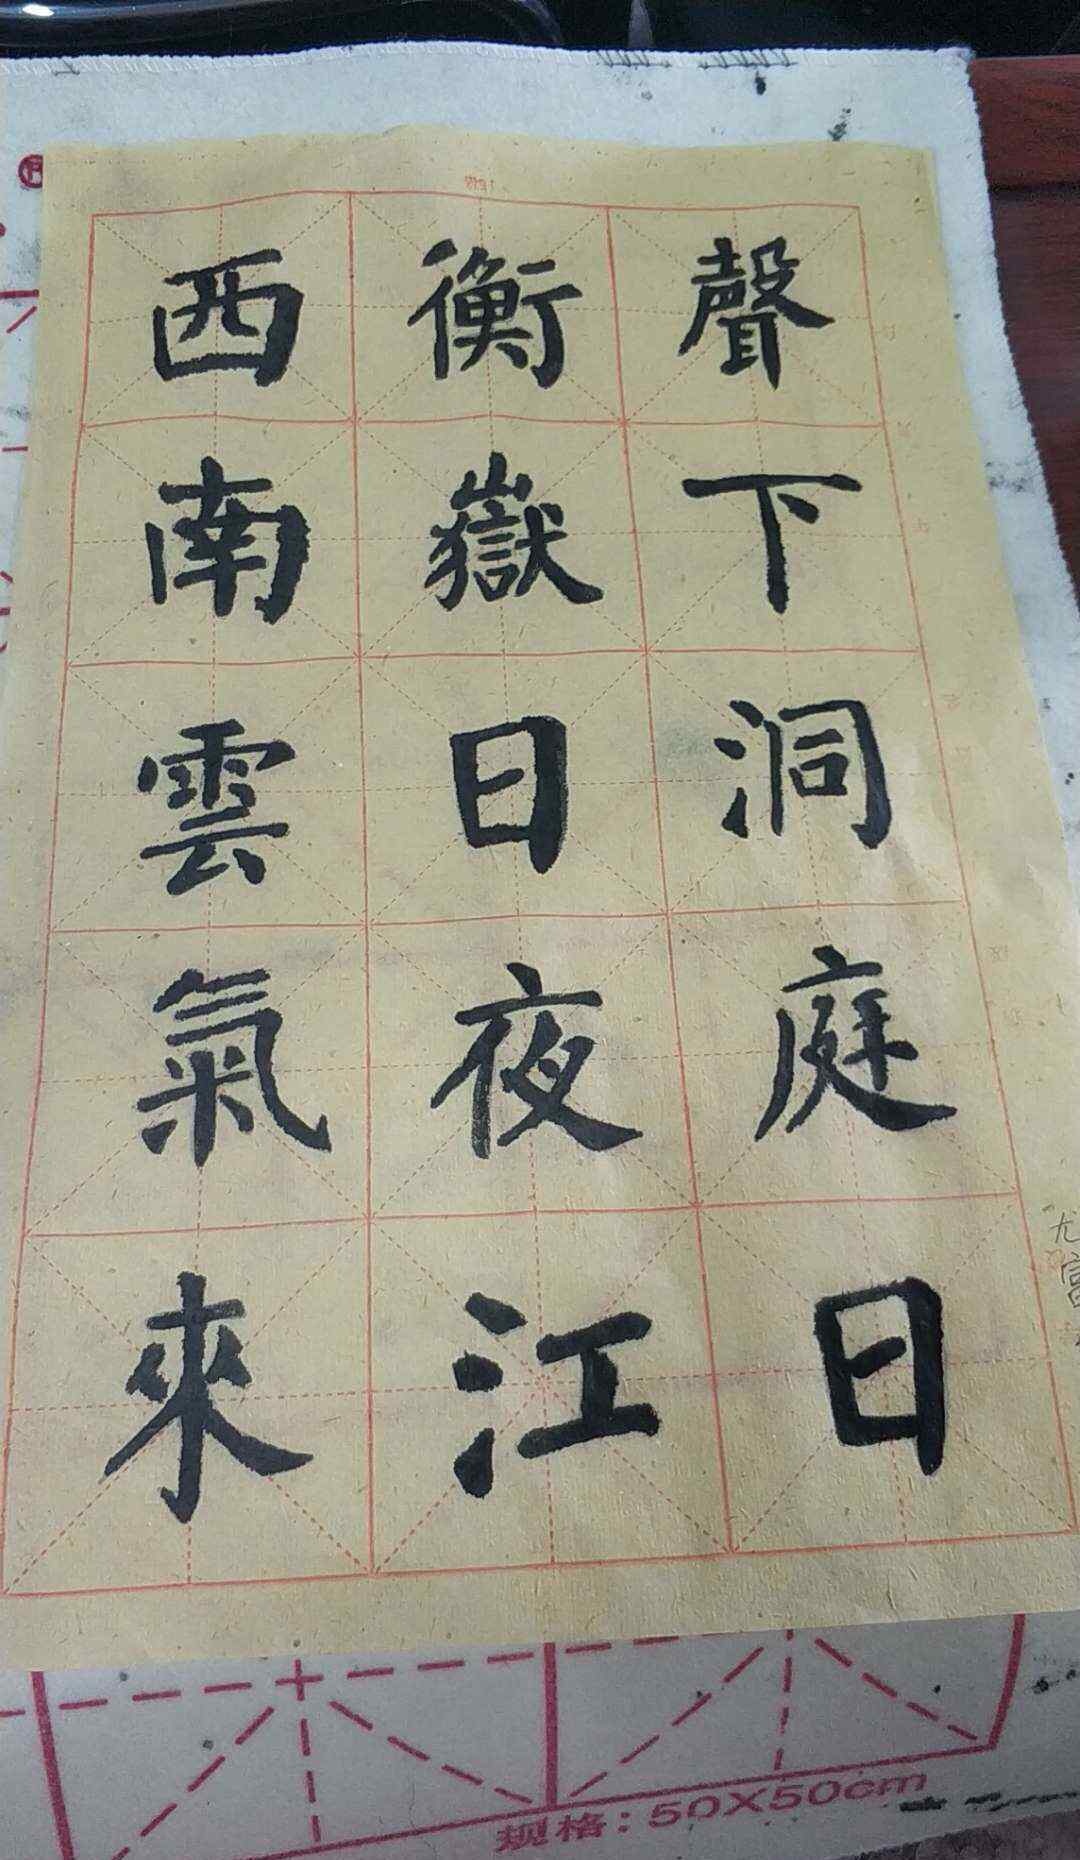 聲下洞庭日
衡嶽日夜江
西南雲氣來
规格:50X50cm